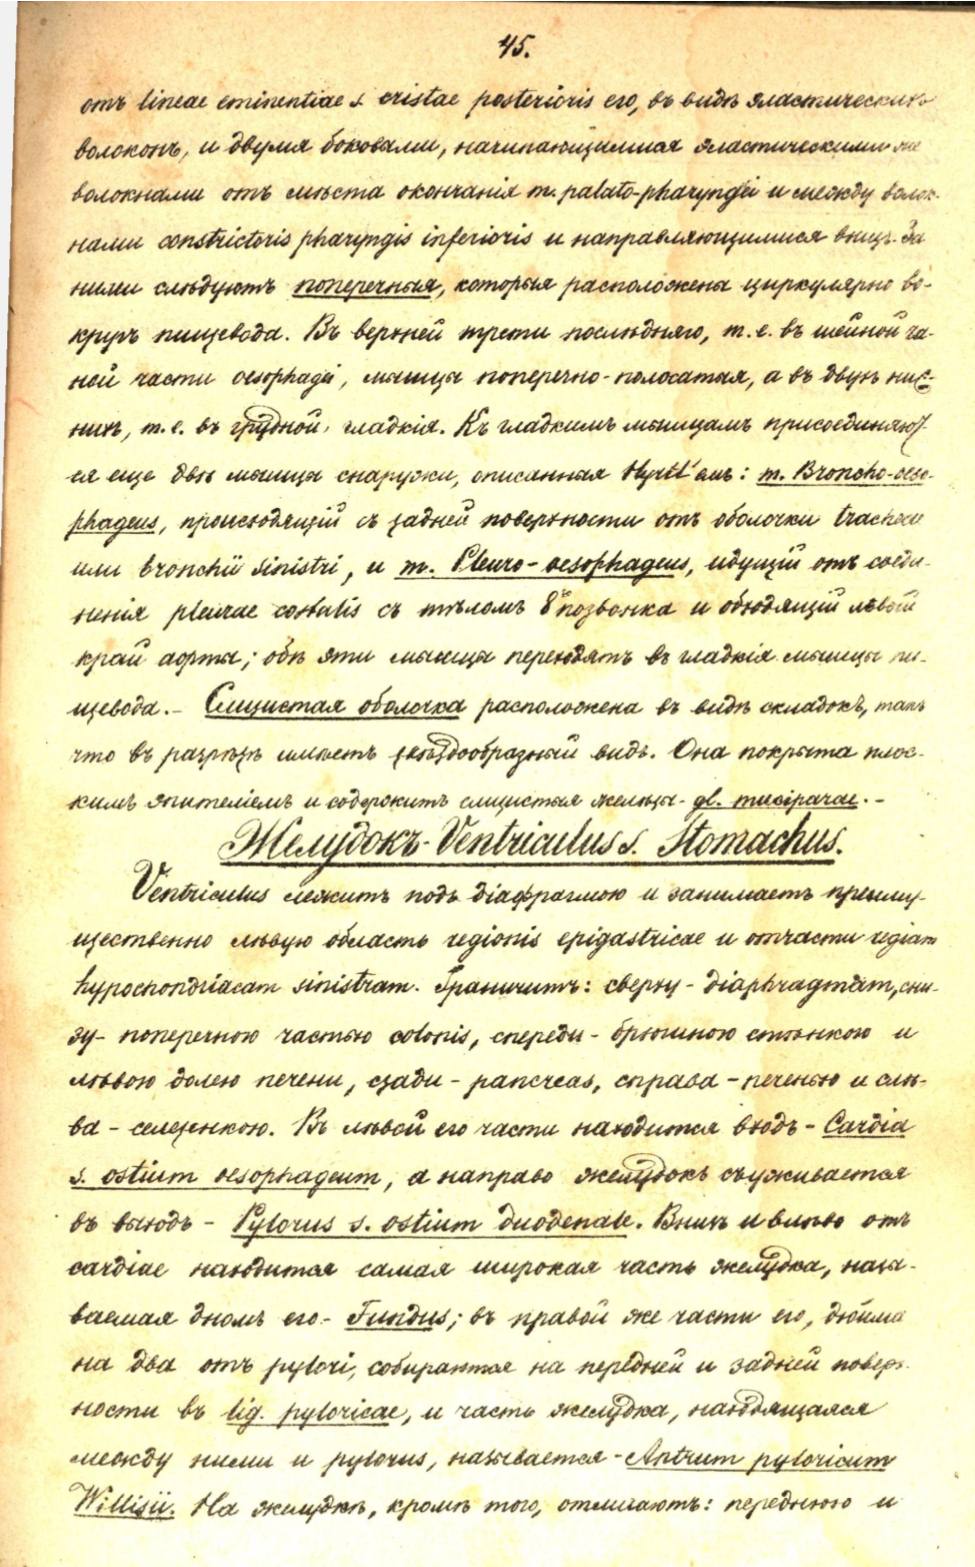 45.
отъ lineae eminentiae s. cristae posterioris его, въ видѣ эластическихъ
волоконъ, и двумя боковыми, начинающимися эластическими же
волокнами отъ мѣста окончанія m. palato-pharyngei и между волок-
нами constrictoris pharyngis inferioris и направляющимися внизъ. За
ними слѣдуютъ поперечныя, которыя расположены циркулярно во-
кругъ пищевода. Въ верхней трети послѣдняго, т. е. въ шейной
ней части oesophagei, мышцы поперечно-полосатыя, а въ двухъ ниж-
нихъ, т. е. въ грудной, гладкія. Къ гладкимъ мышцамъ присоединяют-
ся еще двѣ мышцы снаружи, описанныя Hyrtl'емъ: m. Broncho-oeso-
phageus, происходящій съ задней поверхности отъ оболочки tracheae
или bronchii sinistri, и m. Pleuro-oesophageus, идущій отъ соеди-
ненія pleurae costalis съ тѣломъ 8го позвонка и обходящій лѣвый
край аорты; обѣ эти мышцы переходятъ въ гладкія мышцы пи-
щевода.- Слизистая оболочка расположена въ видѣ складокъ, такъ
что въ разрѣзѣ имѣетъ звѣздообразный видъ. Она покрыта плос-
кимъ эпителіемъ и содержитъ слизистыя железы- gl. muciparae.-
Желудокъ- Ventriculus s. Stomachus.
Ventriculus лежитъ подъ діафрагмою и занимаетъ преиму-
щественно лѣвую область regionis epigastricae и отчасти regiam
hypochondriacam sinistram. Граничитъ: сверху- diaphragmam, сни-
зу- поперечною частью colonis, спереди- брюшною стѣнкою и
лѣвою долею печени, сзади- pancreas, справа- печенью и слѣ-
ва- селезенкою. Въ лѣвой его части находится входъ- Cardia
s. ostium oesophageum, а направо желудокъ съуживается
въ выходъ- Pylorus s. ostium duodenale. Внизъ и влѣво отъ
cardiae находится самая широкая часть желудка, назы-
ваемая дномъ его- Fundus; въ правой же части его, дюйма
на два отъ pylori, собираются на передней и задней повер-
ности въ lig. pyloricae, и часть желудка, находящаяся
между ними и pylorus, называется- Antrum pyloricum
Willisii. На желудкѣ, кромѣ того, отличаютъ: переднюю и